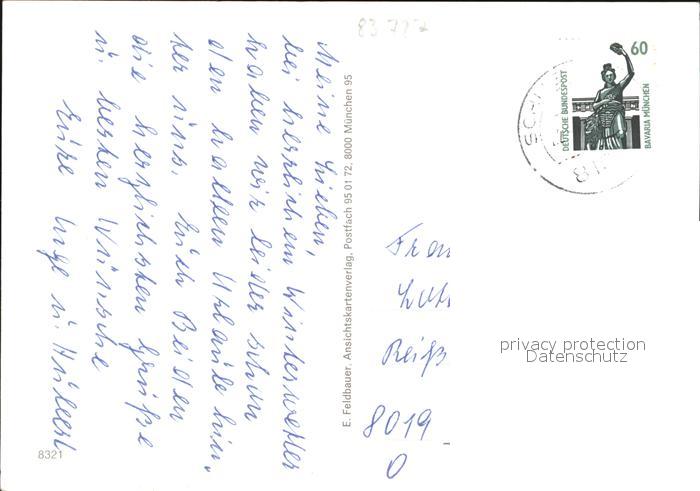 83 727
Meine Lieben,
bei herrlichem Winterwetter
haben wir leider schon
den halben Urlaub hin-
ter uns. Euch Beiden
die herzlichsten Grüße
u. besten Wünsche
Eure Inge u. Hubert
E. Feldbauer, Ansichtskartenverlag, Postfach 95 01 72, 8000 München 95
8321
60
DEUTSCHE BUNDESPOST
BAVARIA MÜNCHEN
SCH
Frau
Reiß
8019
O
privacy protection
Datenschutz